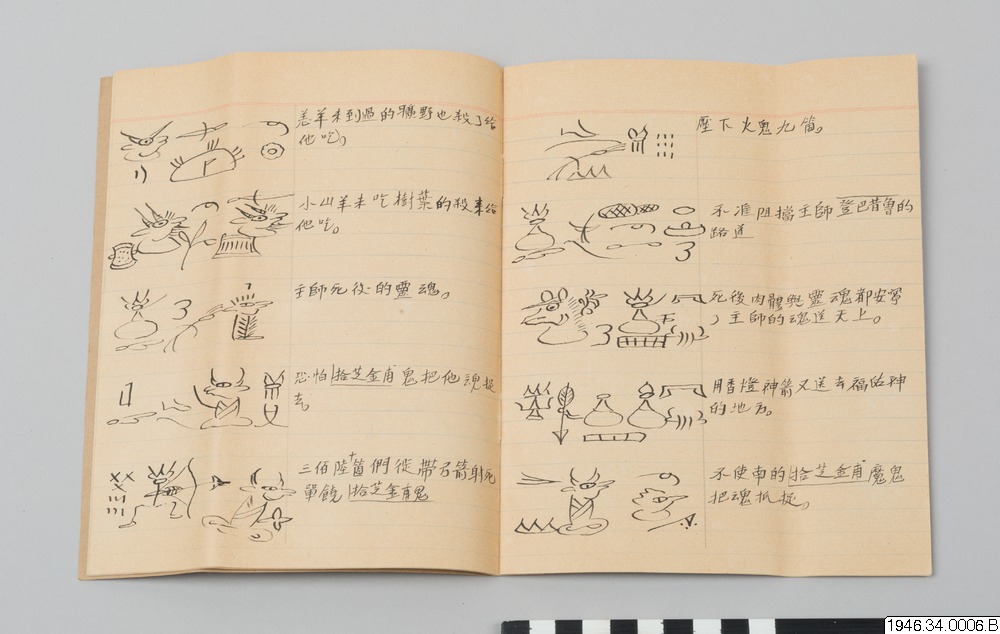 羊未到過的曠野也殺了給
他吃,
小山羊未吃樹葉的殺来給
他吃。
主師死後的靈魂。
恐怕拾芝金甫鬼把他魂捉
去。
三佰陸十箇們徒帶弓箭射死
單饒拾芝金甫鬼
壓下火鬼九箇。
不准阻擋主師登巴昔魯的
路道
死後肉體與靈魂都安寧
主師的魂送天上。
用香燈神箭又送去福佑神
的地方。
不使南的拾芝金甫魔鬼
把魂抓捉。
1946.34.0006.B